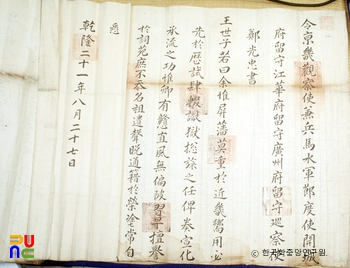 令京畿觀察使兼兵馬水軍節度使開城
府留守江華府留守廣州府留守巡察使
鄭光忠書
王世子若曰余惟屏藩莫重於近畿嚮用必
先於歷試肆輟獄掾錄之任俾奏宣化
承流之功惟卿有戇直風無偏陂習早擅譽
於詞苑庶不忝名祖遺聲晩通籍於榮途常自
乾隆二十一年八月二十七日
한국학중앙연구원